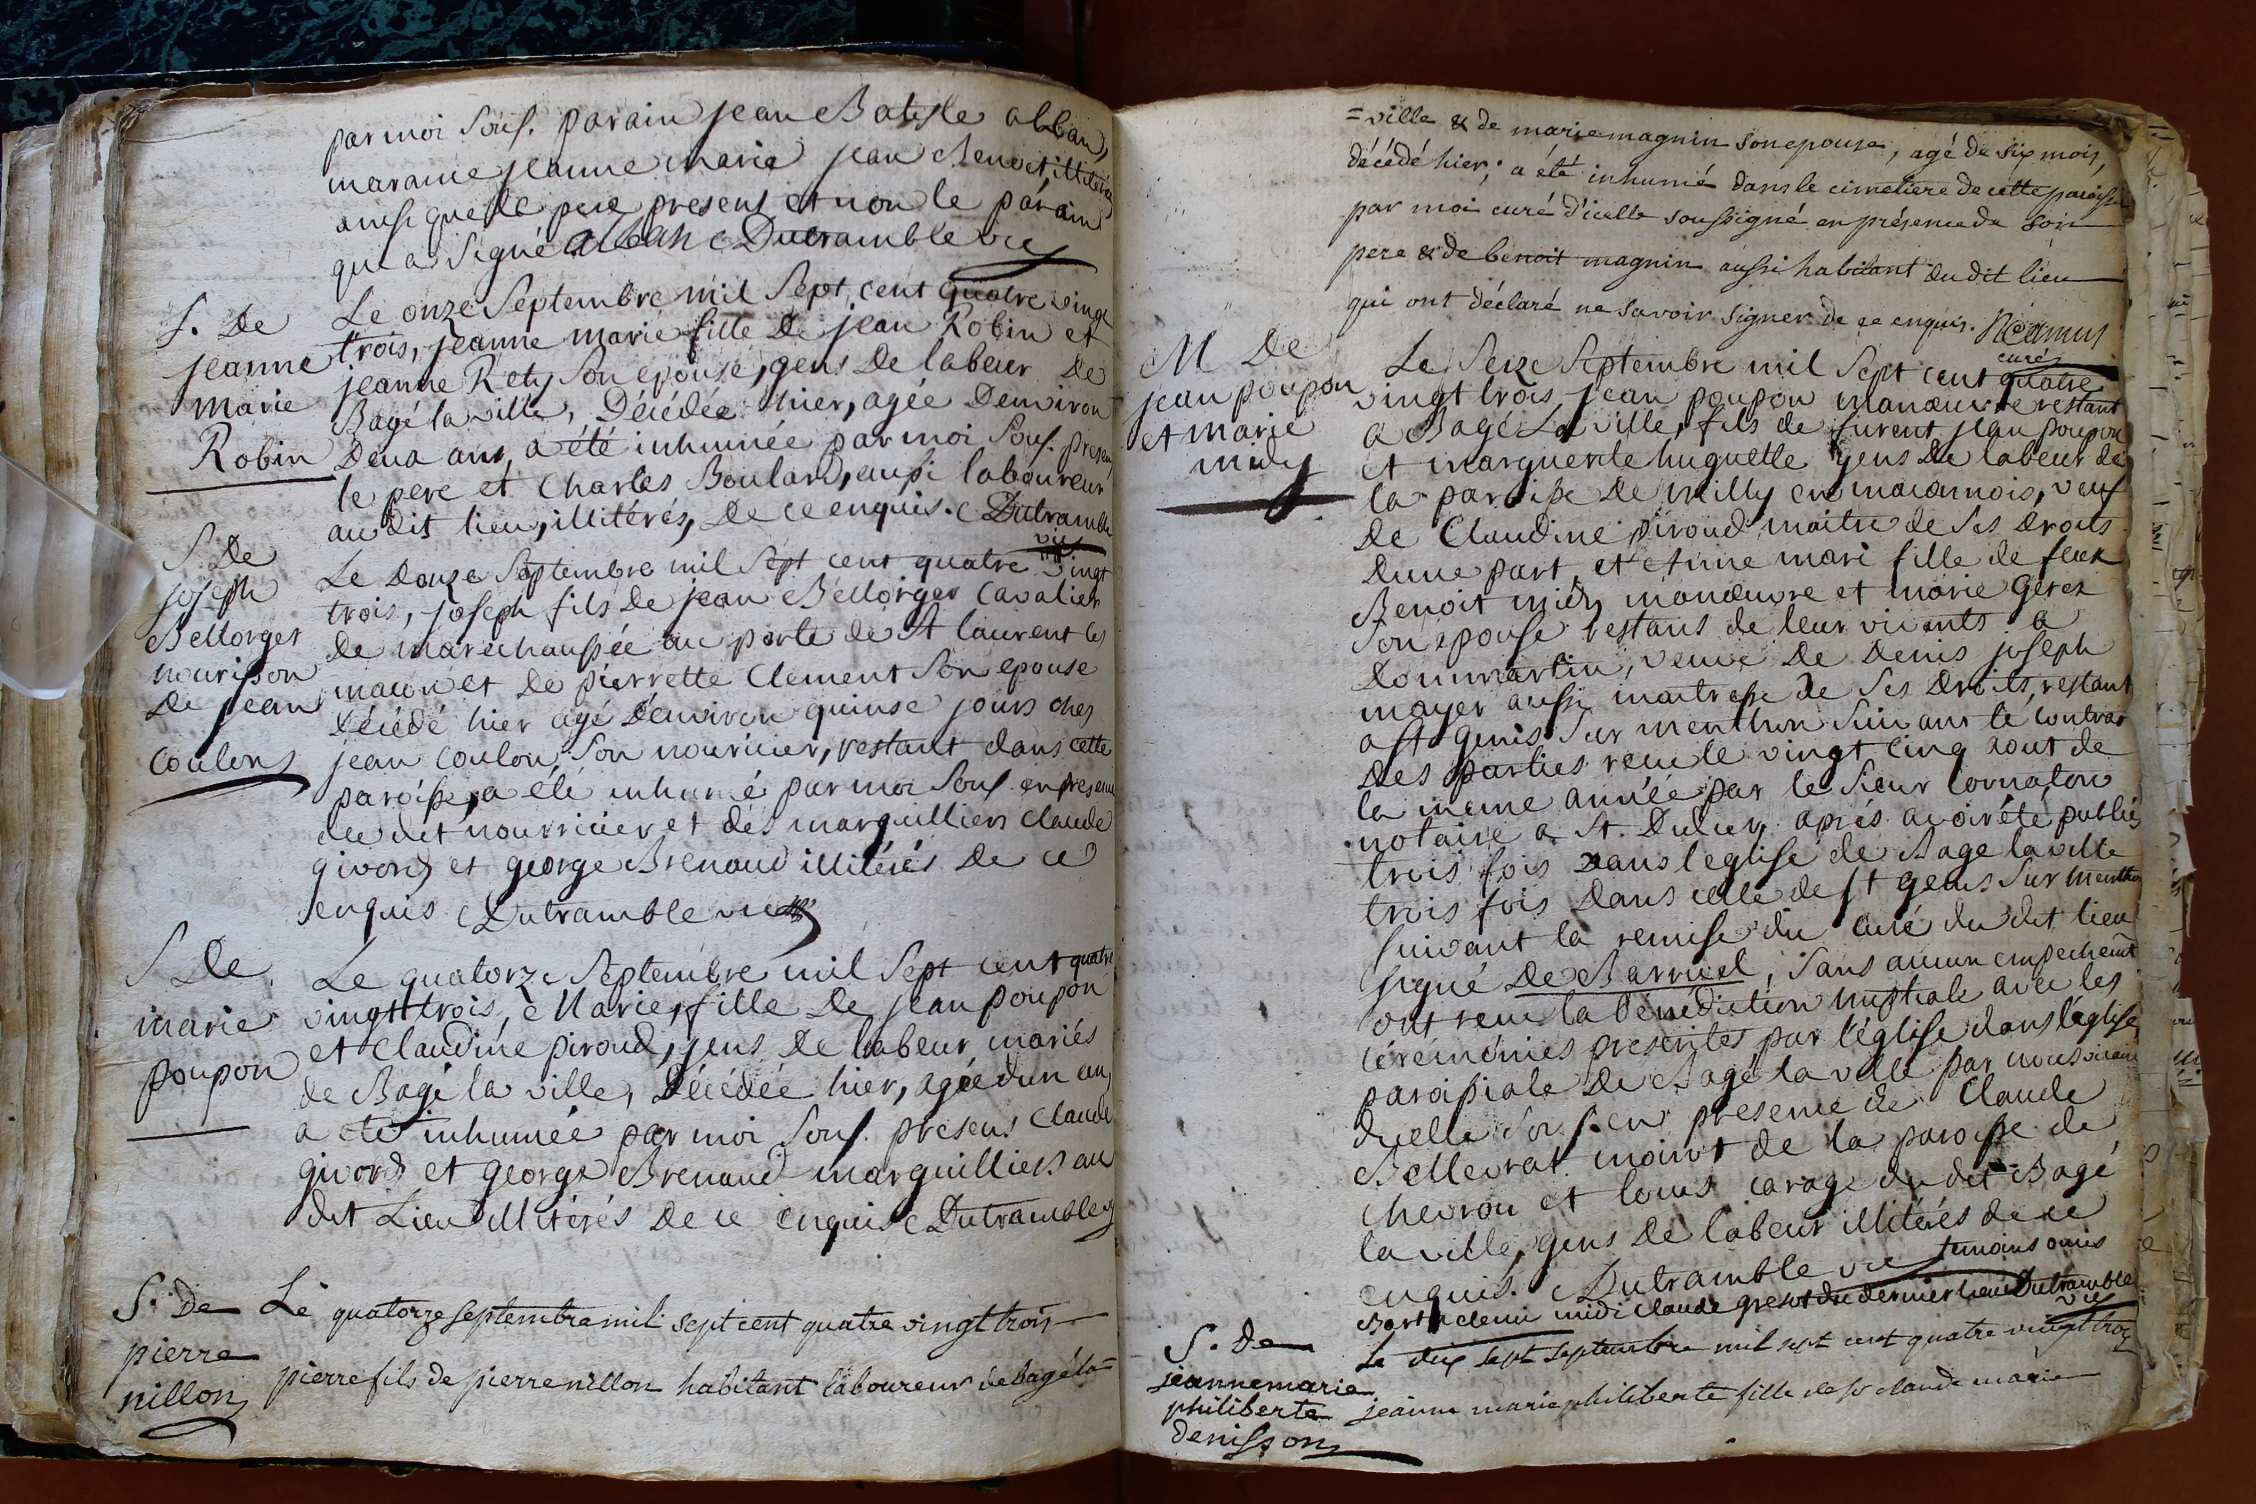 par moi sous. parain jean Batiste alban,
maraine jeanne marie jean Benoit illiterée
ainsi que le pere present et non le parain
qui a signé alban Dutramble vic
S. De
jeanne
marie
Robin
Le onze Septembre mil Sept cent quatre vingt
trois, jeanne marie fille De jean Robin et
jeanne Rety son epouse, gens De labeur De
Bagé la ville, Décédée hier, agée Denviron
Deux ans, a été inhumée par moi Sous. presens
le pere et Charles Boulard, aussi laboureur
au dit lieu, illitérés, De ce enquis. Dutramble
vic
S. De
joseph
Bellorger
nourisson
De jean
Coulon
Le Douze Septembre mil Sept cent quatre vingt
trois, joseph fils De jean Bellorger Cavalier
De marechaussée au porte de St laurent les
macon et De pierrette Clement Son epouse
Décédé hier agé Denviron quinse jours ches
jean coulon Son nouricier, restant dans cette
paroisse, a été inhumé par moi Sous. en presence
du dit nourricier et des marguilliers claude
givord et george Brenaud illitérés De ce
enquis Dutramble vic
S De
marie
poupon
Le quatorze Septembre mil Sept cent quatre
vingt trois, Marie, fille De jean poupon
et Claudine piroud, gens De labeur mariés
de Bagé la ville, Décédée hier, agée dun an,
a été inhumée par moi Sous. presens Claude
givord et george Brenaud marguilliers au
dit Lieu illitérés De ce enquis Dutramble
S. De
pierre
nillon
Le quatorze septembre mil sept cent quatre vingt trois
pierre fils de pierre nillon habitant laboureur de bagé la=
=ville & de marie magnin son epouse, agé de six mois,
décédé hier; a été inhumé dans le cimetiere de cette paroisse
par moi curé d'icelle soussigné en présence de son
pere & de benoit magnin aussi habitant du dit lieu
qui ont déclaré ne savoir signer de ce enquis. Ncamus
curé
M De
jean poupon
et marie
midy
Le Seize Septembre mil Sept cent quatre
vingt trois jean poupon manœuvre restant
a Bagé La ville, fils de furent jean poupon
et marguerite huguette gens De labeur de
la paroisse De milly en maconnois, veuf
De Claudine piroud maitre de Ses Droits
Dune part, et Anne mari fille de feux
Benoit midy manœuvre et marie Gerez
Son epouse restans de leur vivants a
Dommartin, veuve De Denis joseph
moyer aussi maitresse de Ses Droits, restant
a St genis Sur menthon Suivant le contrat
Des parties recu le vingt cinq aout de
la meme année par le Sieur Cornaton
notaire a St. Didier, aprés avoir été publiés
trois fois Dans l'eglise de Bage la ville
trois fois Dans celle de St genis Sur menthon
Suivant la remise du curé du dit lieu
signé De Barruel, Sans aucun empechemt
ont recu la bénédiction nuptiale avec les
cérémonies prescrites par l'église dans l'église
paroissiale De Bagé la ville par nous vicaire
dicelle Sous. en presence de Claude
Bellevrat mairot de la paroisse de
Chevrou et louis carage du dit Bagé
la ville, gens De labeur illitérés de ce
enquis. Dutramble vic temoins omis
Barthelemi midi claude gresot du dernier lieu Dutramble
vic
S. de
jeanne marie
philiberte
denisson
Le dix sept septembre mil sept cent quatre vingt trois
jeanne marie philiberte fille de sr claude marie